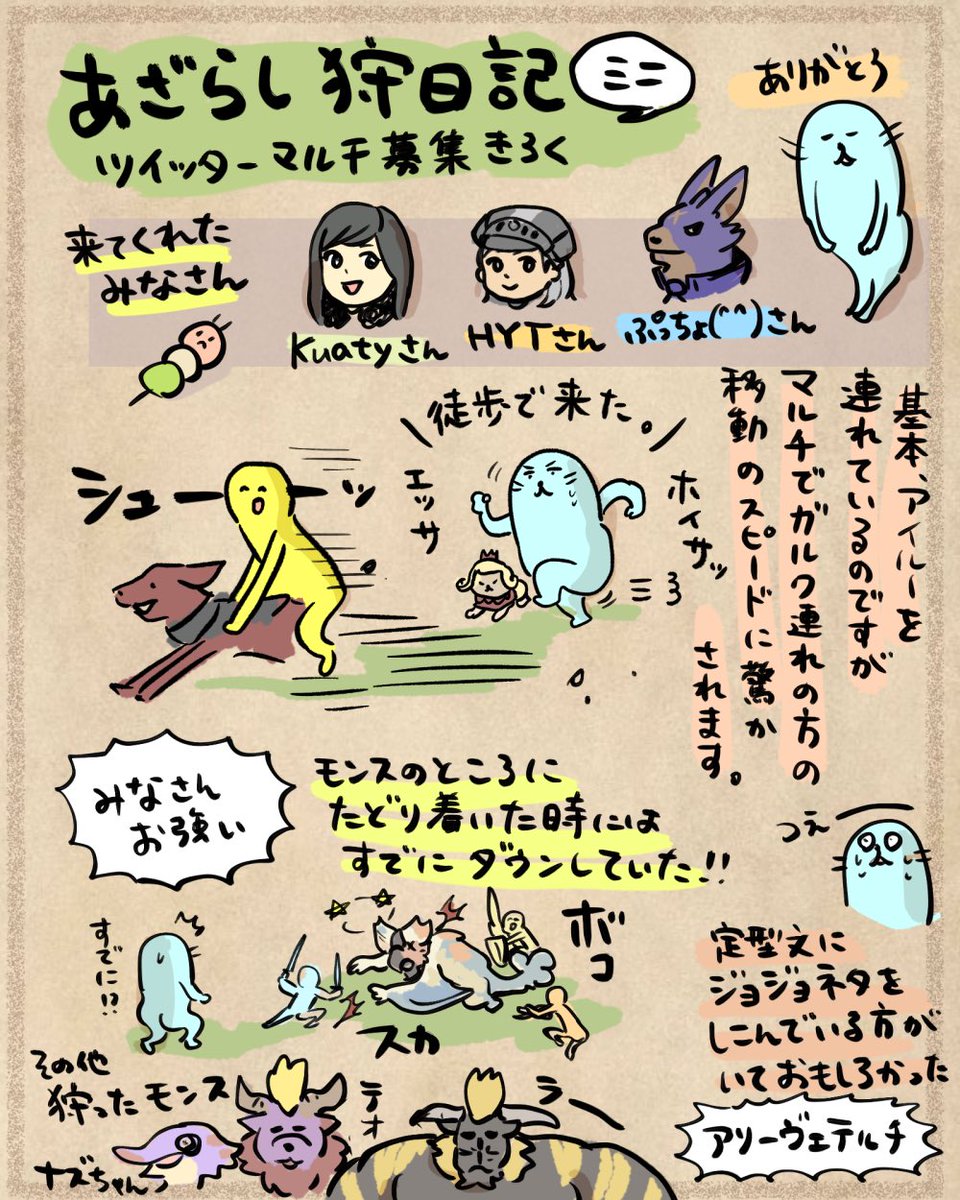 あざらし狩日記
ミニ
ツイッターマルチ募集きろく
ありがとう
来てくれた
みなさん
Kuatyさん
HYTさん
ぷっちょ(^^)さん
基本、アイルーを
連れているのですが
マルチでガルク連れの方の
移動のスピードに驚か
されます。
徒歩で来た。
シューーッ
エッサ
ホイサッ
みなさん
お強い
モンスのところに
たどり着いた時には
すでにダウンしていた!!
つえー
すでに!?
ボコ
スカ
定型文に
ジョジョネタを
しこんでいる方が
いておもしろかった
アリーヴェデルチ
その他
狩ったモンス
ナズちゃん
テオ
ラー